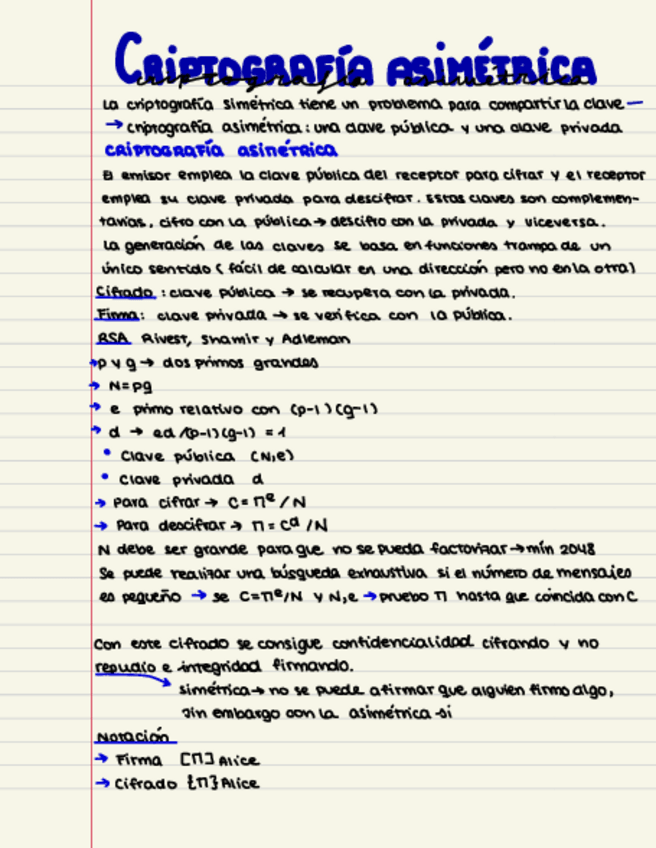 CRIPTOGRAFÍA ASIMÉTRICA
criptografía asimétrica
La criptografía simétrica tiene un problema para compartir la clave —
→ criptografía asimétrica: una clave pública y una clave privada
CRIPTOGRAFÍA ASIMÉTRICA
El emisor emplea la clave pública del receptor para cifrar y el receptor
emplea su clave privada para descifrar. Estas claves son complemen-
tarias, cifro con la pública → descifro con la privada y viceversa.
La generación de las claves se basa en funciones trampa de un
único sentido (fácil de calcular en una dirección pero no en la otra)
Cifrado: clave pública → se recupera con la privada.
Firma: clave privada → se verifica con la pública.
RSA Rivest, Shamir y Adleman
→ p y q → dos primos grandes
→ N=pq
→ e primo relativo con (p-1)(q-1)
→ d → ed/(p-1)(q-1) = 1
• Clave pública (N,e)
• Clave privada d
→ Para cifrar → C=Mᵉ/N
→ Para descifrar → M=Cᵈ/N
N debe ser grande para que no se pueda factorizar → mín 2048
Se puede realizar una búsqueda exhaustiva si el número de mensajes
es pequeño → se C=Mᵉ/N y N,e → pruebo M hasta que coincida con C
Con este cifrado se consigue confidencialidad cifrando y no
repudio e integridad firmando.
simétrica → no se puede afirmar que alguien firmo algo,
sin embargo con la asimétrica si
Notación
→ Firma [M]Alice
→ Cifrado {M}Alice